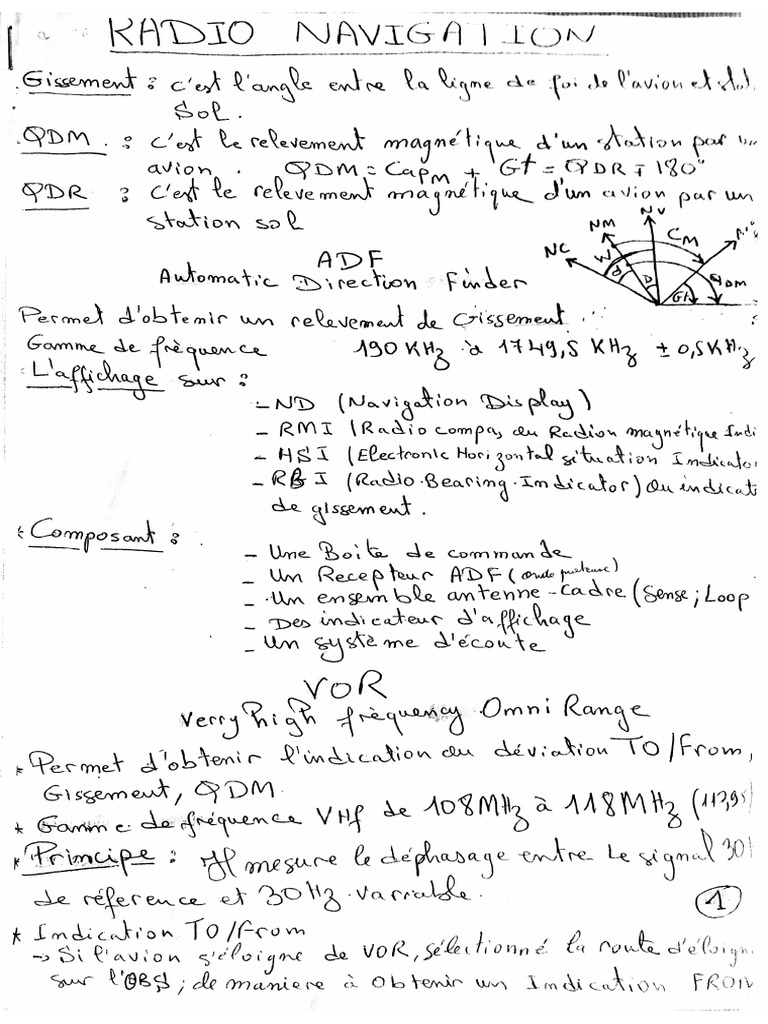 RADIO NAVIGATION
Gissement : c'est l'angle entre la ligne de foi de l'avion et
Sol.
QDM : c'est le relevement magnétique d'un station par
avion. QDM = Cap M + Gt = QDR ∓ 180°
QDR : c'est le relevement magnétique d'un avion par un
station sol
NC NM NV CM QDM Gt D
ADF
Automatic Direction Finder
Permet d'obtenir un relevement de Gissement.
Gamme de fréquence 190 KHz à 1749,5 KHz ± 0,5 KHz
L'affichage sur :
- ND (Navigation Display)
- RMI (Radio compas ou Radion magnétique Indi
- HSI (Electronic Horizontal situation Indicator
- RBI (Radio.Bearing.Indicator) ou indicat
de gissement.
* Composant :
- Une Boite de commande
- Un Recepteur ADF (onde porteuse)
- Un ensemble antenne-cadre (Sense ; Loop
- Des indicateur d'affichage
- Un système d'écoute
VOR
Verry high fréquency Omni Range
* Permet d'obtenir l'indication ou déviation TO/From,
Gissement, QDM
* Gamme de fréquence VHf de 108MHz à 118MHz (117,95
* Principe : Il mesure le déphasage entre Le signal 30
de réference et 30Hz variable.
1
* Indication TO/From
→ Si l'avion s'éloigne de VOR, sélectionné la route d'éloign
sur l'OBS ; de maniere à obtenir un Indication FROM